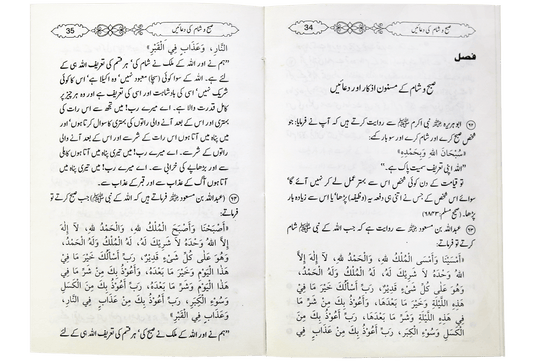 صبح و شام کی دعائیں
34
فصل
صبح و شام کے مسنون اذکار اور دعائیں
ابو ہریرہ ﷜ نبی اکرم ﷺ سے روایت کرتے ہیں کہ آپ نے فرمایا: جو
شخص صبح کرے اور شام کرے اور سو بار کہے:
«سُبْحَانَ اللهِ وَبِحَمْدِهِ»
”اللہ اپنی تعریف سمیت پاک ہے۔“
تو قیامت کے دن کوئی شخص اس سے بہتر عمل لے کر نہیں آئے گا
سوائے اس شخص کے جس نے اتنی ہی دفعہ یہ (وظیفہ) پڑھا یا اس سے زیادہ بار
پڑھا۔ (صحیح مسلم:
عبداللہ بن مسعود ﷜ سے روایت ہے کہ جب اللہ کے نبی ﷺ شام
کرتے تو فرماتے:
«أَمْسَيْنَا وَأَمْسَى الْمُلْكُ للهِ، وَالْحَمْدُ للهِ، لَا إِلٰهَ إِلَّا
اللهُ وَحْدَهُ لَا شَرِيكَ لَهُ، لَهُ الْمُلْكُ وَلَهُ الْحَمْدُ،
وَهُوَ عَلَى كُلِّ شَيْءٍ قَدِيْرٌ، رَبِّ أَسْأَلُكَ خَيْرَ مَا فِي
هَذِهِ اللَّيْلَةِ وَخَيْرَ مَا بَعْدَهَا، وَأَعُوْذُ بِكَ مِنْ شَرِّ مَا
فِي هَذِهِ اللَّيْلَةِ وَشَرِّ مَا بَعْدَهَا، رَبِّ أَعُوْذُ بِكَ مِنَ
الْكَسَلِ وَسُوْءِ الْكِبَرِ، رَبِّ أَعُوْذُ بِكَ مِنْ عَذَابٍ فِي
صبح و شام کی دعائیں
35
النَّارِ، وَعَذَابٍ فِي الْقَبْرِ»
”ہم نے اور اللہ کے ملک نے شام کی‘ ہر قسم کی تعریف اللہ ہی کے
لئے ہے۔ اللہ کے سوا کوئی (سچا) معبود نہیں‘ وہ اکیلا ہے‘ اس کا کوئی
شریک نہیں‘ اسی کی بادشاہت اور اسی کی تعریف ہے اور وہ ہر چیز پر
کامل قدرت والا ہے۔ اے میرے رب! میں تجھ سے اس رات کی
بہتری اور اس کے بعد آنے والی راتوں کی بہتری کا سوال کرتا ہوں‘ اور
میں پناہ میں آتا ہوں اس رات کے شر سے اور اس کے بعد آنے والی
راتوں کے شر سے۔ اے میرے رب! میں تیری پناہ میں آتا ہوں کاہلی
سے اور بڑھاپے کی خرابی سے۔ اے میرے رب! میں تیری پناہ میں
آتا ہوں آگ کے عذاب سے اور قبر کے عذاب سے۔
(عبداللہ بن مسعود ﷜ فرماتے ہیں کہ اللہ کے نبی ﷺ) جب صبح کرتے تو
فرماتے:
«أَصْبَحْنَا وَأَصْبَحَ الْمُلْكُ للهِ، وَالْحَمْدُ للهِ، لَا إِلٰهَ
إِلَّا اللهُ وَحْدَهُ لَا شَرِيكَ لَهُ، لَهُ الْمُلْكُ وَلَهُ الْحَمْدُ،
وَهُوَ عَلَى كُلِّ شَيْءٍ قَدِيْرٌ، رَبِّ أَسْأَلُكَ خَيْرَ مَا فِي
هَذَا الْيَوْمِ وَخَيْرَ مَا بَعْدَهُ، وَأَعُوْذُ بِكَ مِنْ شَرِّ مَا فِي
هَذَا الْيَوْمِ وَشَرِّ مَا بَعْدَهُ، رَبِّ أَعُوْذُ بِكَ مِنَ الْكَسَلِ
وَسُوْءِ الْكِبَرِ، رَبِّ أَعُوْذُ بِكَ مِنْ عَذَابٍ فِي النَّارِ،
وَعَذَابٍ فِي الْقَبْرِ»
”ہم نے اور اللہ کے ملک نے صبح کی‘ ہر قسم کی تعریف اللہ ہی کے لئے